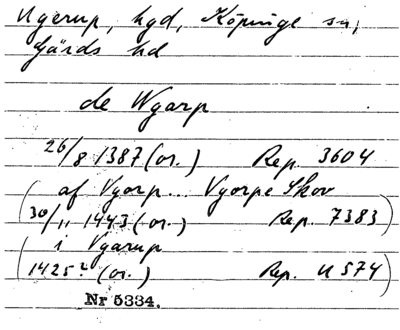 Ugerup, hgd, Köpinge sn,
Gärds hd
de Wgarp
26/8 1387 (or.) Rep. 3604
(af Vgorp... Vgorpe Skov
30/11 1443 (or.) Rep. 7383)
(i Vgarup
1425? (or.) Rep. U 574)
Nr 5334.